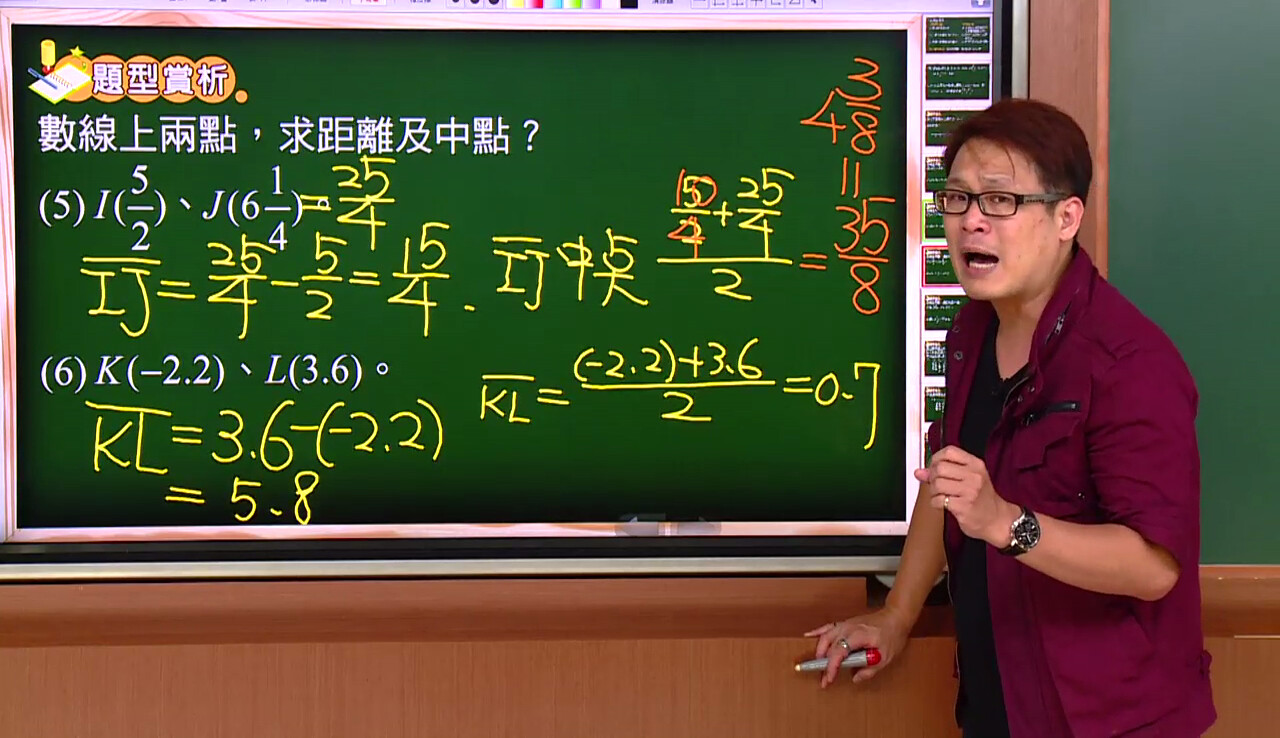 題型賞析
數線上兩點，求距離及中點？
(5) I(5/2)、J(6 1/4)。= 25/4
IJ = 25/4 - 5/2 = 15/4 .
IJ 中点 (10/4 + 25/4)/2 = 35/8
= 4 3/8
(6) K(−2.2)、L(3.6)。
KL = 3.6-(-2.2)
= 5.8
KL = ((-2.2)+3.6)/2 = 0.7